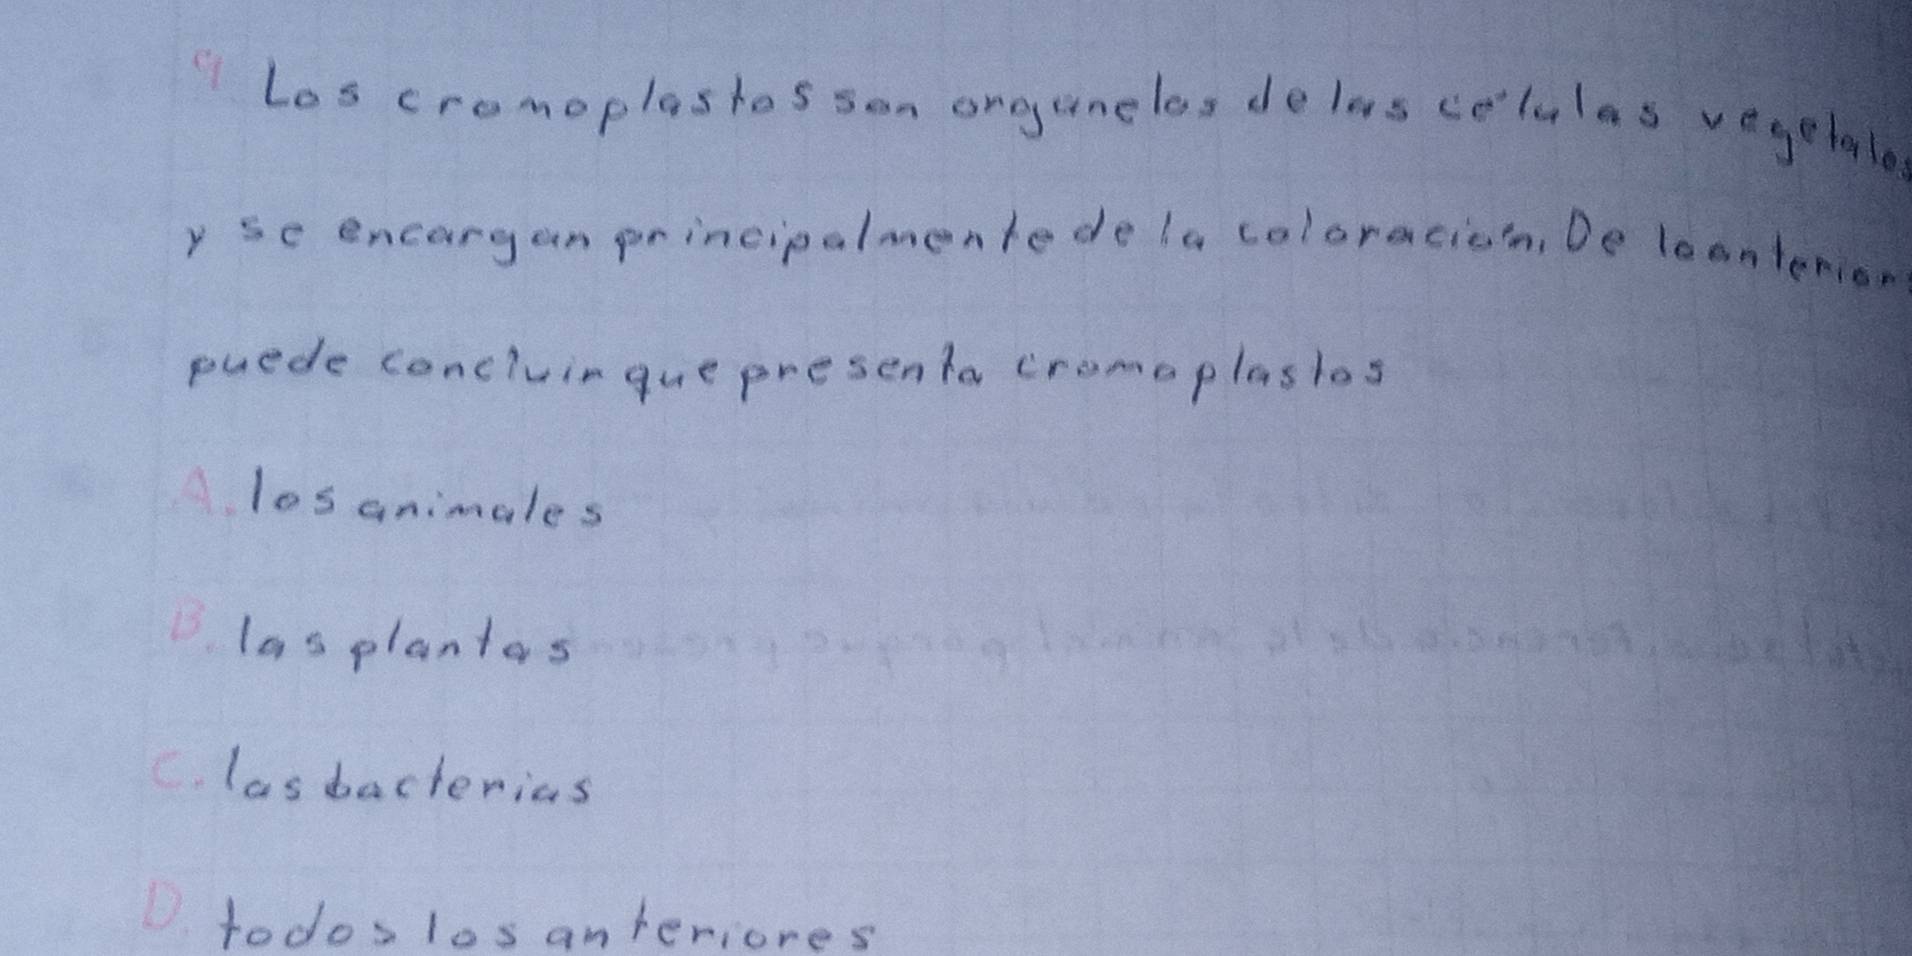 9 Los cromoplastos son organelos de las células vegetales
y se encargan principalmente de la coloración. De lo anterior
puede concluir que presenta cromoplastos
A. los animales
B. las plantas
C. las bacterias
D. todos los anteriores